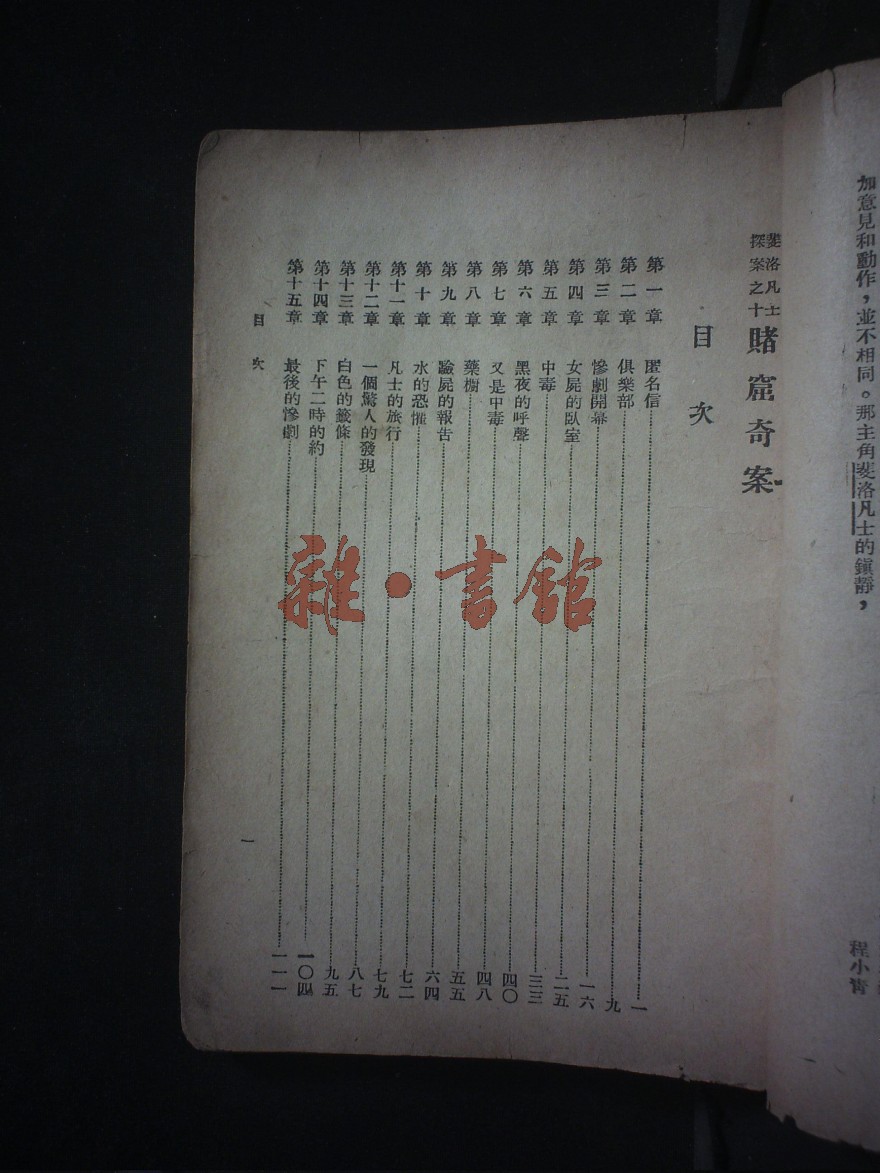 加意見和動作，並不相同。那主角斐洛凡士的鎭靜，
程小靑
斐洛凡士
探案之十
賭窟奇案
目次
第一章 匿名信 一
第二章 俱樂部 九
第三章 慘劇開幕 一六
第四章 女屍的臥室 二五
第五章 中毒 三三
第六章 黑夜的呼聲 四〇
第七章 又是中毒 四八
第八章 藥櫥 五五
第九章 驗屍的報吿 六四
第十章 水的恐懼 七二
第十一章 凡士的旅行 七九
第十二章 一個驚人的發現 八七
第十三章 白色的籤條 九五
第十四章 下午二時的約 一〇四
第十五章 最後的慘劇 一一一
目次
一
雜·書館